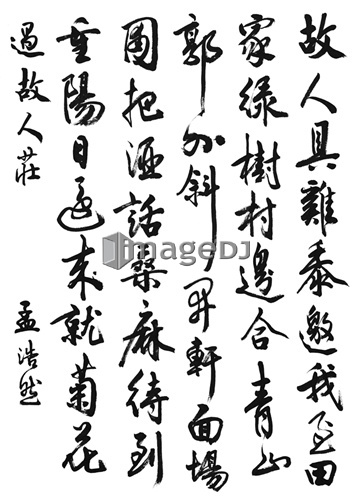 故人具雞黍邀我至田
家綠樹村邊合青山
郭外斜開軒面場
圃把酒話桑麻待到
重陽日還來就菊花
過故人莊
孟浩然
imageDJ